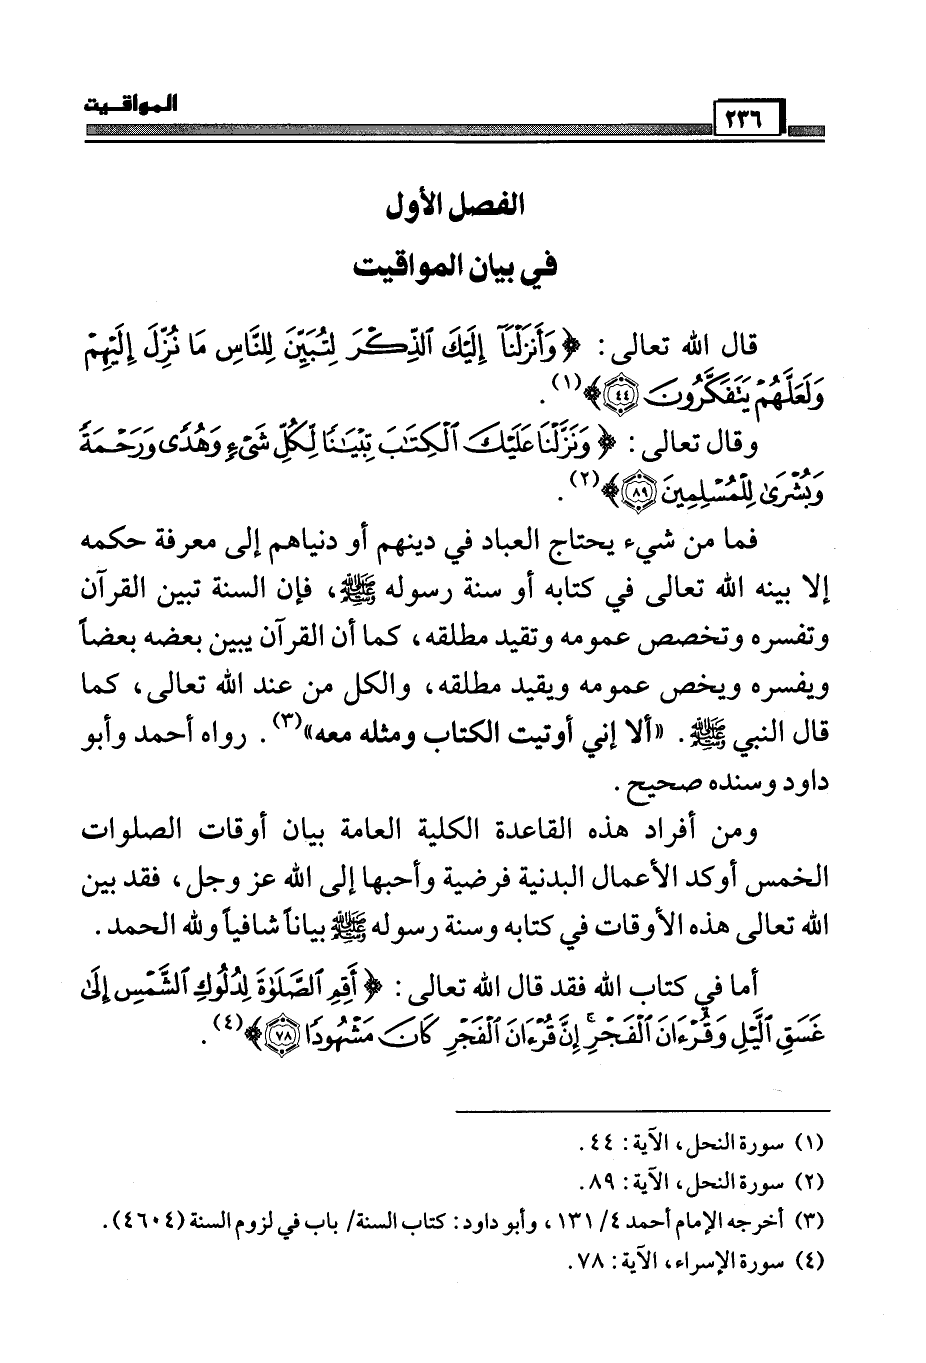 المواقيت
٢٣٦
الفصل الأول
في بيان المواقيت
قال الله تعالى: ﴿وَأَنزَلْنَآ إِلَيْكَ ٱلذِّكْرَ لِتُبَيِّنَ لِلنَّاسِ مَا نُزِّلَ إِلَيْهِمْ
وَلَعَلَّهُمْ يَتَفَكَّرُونَ ٤٤﴾(١).
وقال تعالى: ﴿وَنَزَّلْنَا عَلَيْكَ ٱلْكِتَٰبَ تِبْيَٰنًا لِّكُلِّ شَىْءٍ وَهُدًى وَرَحْمَةً
وَبُشْرَىٰ لِلْمُسْلِمِينَ ٨٩﴾(٢).
فما من شيء يحتاج العباد في دينهم أو دنياهم إلى معرفة حكمه
إلا بينه الله تعالى في كتابه أو سنة رسوله ﷺ، فإن السنة تبين القرآن
وتفسره وتخصص عمومه وتقيد مطلقه، كما أن القرآن يبين بعضه بعضاً
ويفسره ويخص عمومه ويقيد مطلقه، والكل من عند الله تعالى، كما
قال النبي ﷺ. «ألا إني أوتيت الكتاب ومثله معه»(٣). رواه أحمد وأبو
داود وسنده صحيح.
ومن أفراد هذه القاعدة الكلية العامة بيان أوقات الصلوات
الخمس أوكد الأعمال البدنية فرضية وأحبها إلى الله عز وجل، فقد بين
الله تعالى هذه الأوقات في كتابه وسنة رسوله ﷺ بياناً شافياً ولله الحمد.
أما في كتاب الله فقد قال الله تعالى: ﴿أَقِمِ ٱلصَّلَوٰةَ لِدُلُوكِ ٱلشَّمْسِ إِلَىٰ
غَسَقِ ٱلَّيْلِ وَقُرْءَانَ ٱلْفَجْرِ ۖ إِنَّ قُرْءَانَ ٱلْفَجْرِ كَانَ مَشْهُودًا ٧٨﴾(٤).
(١) سورة النحل، الآية: ٤٤.
(٢) سورة النحل، الآية: ٨٩.
(٣) أخرجه الإمام أحمد ٤/ ١٣١، وأبو داود: كتاب السنة/ باب في لزوم السنة (٤٦٠٤).
(٤) سورة الإسراء، الآية: ٧٨.